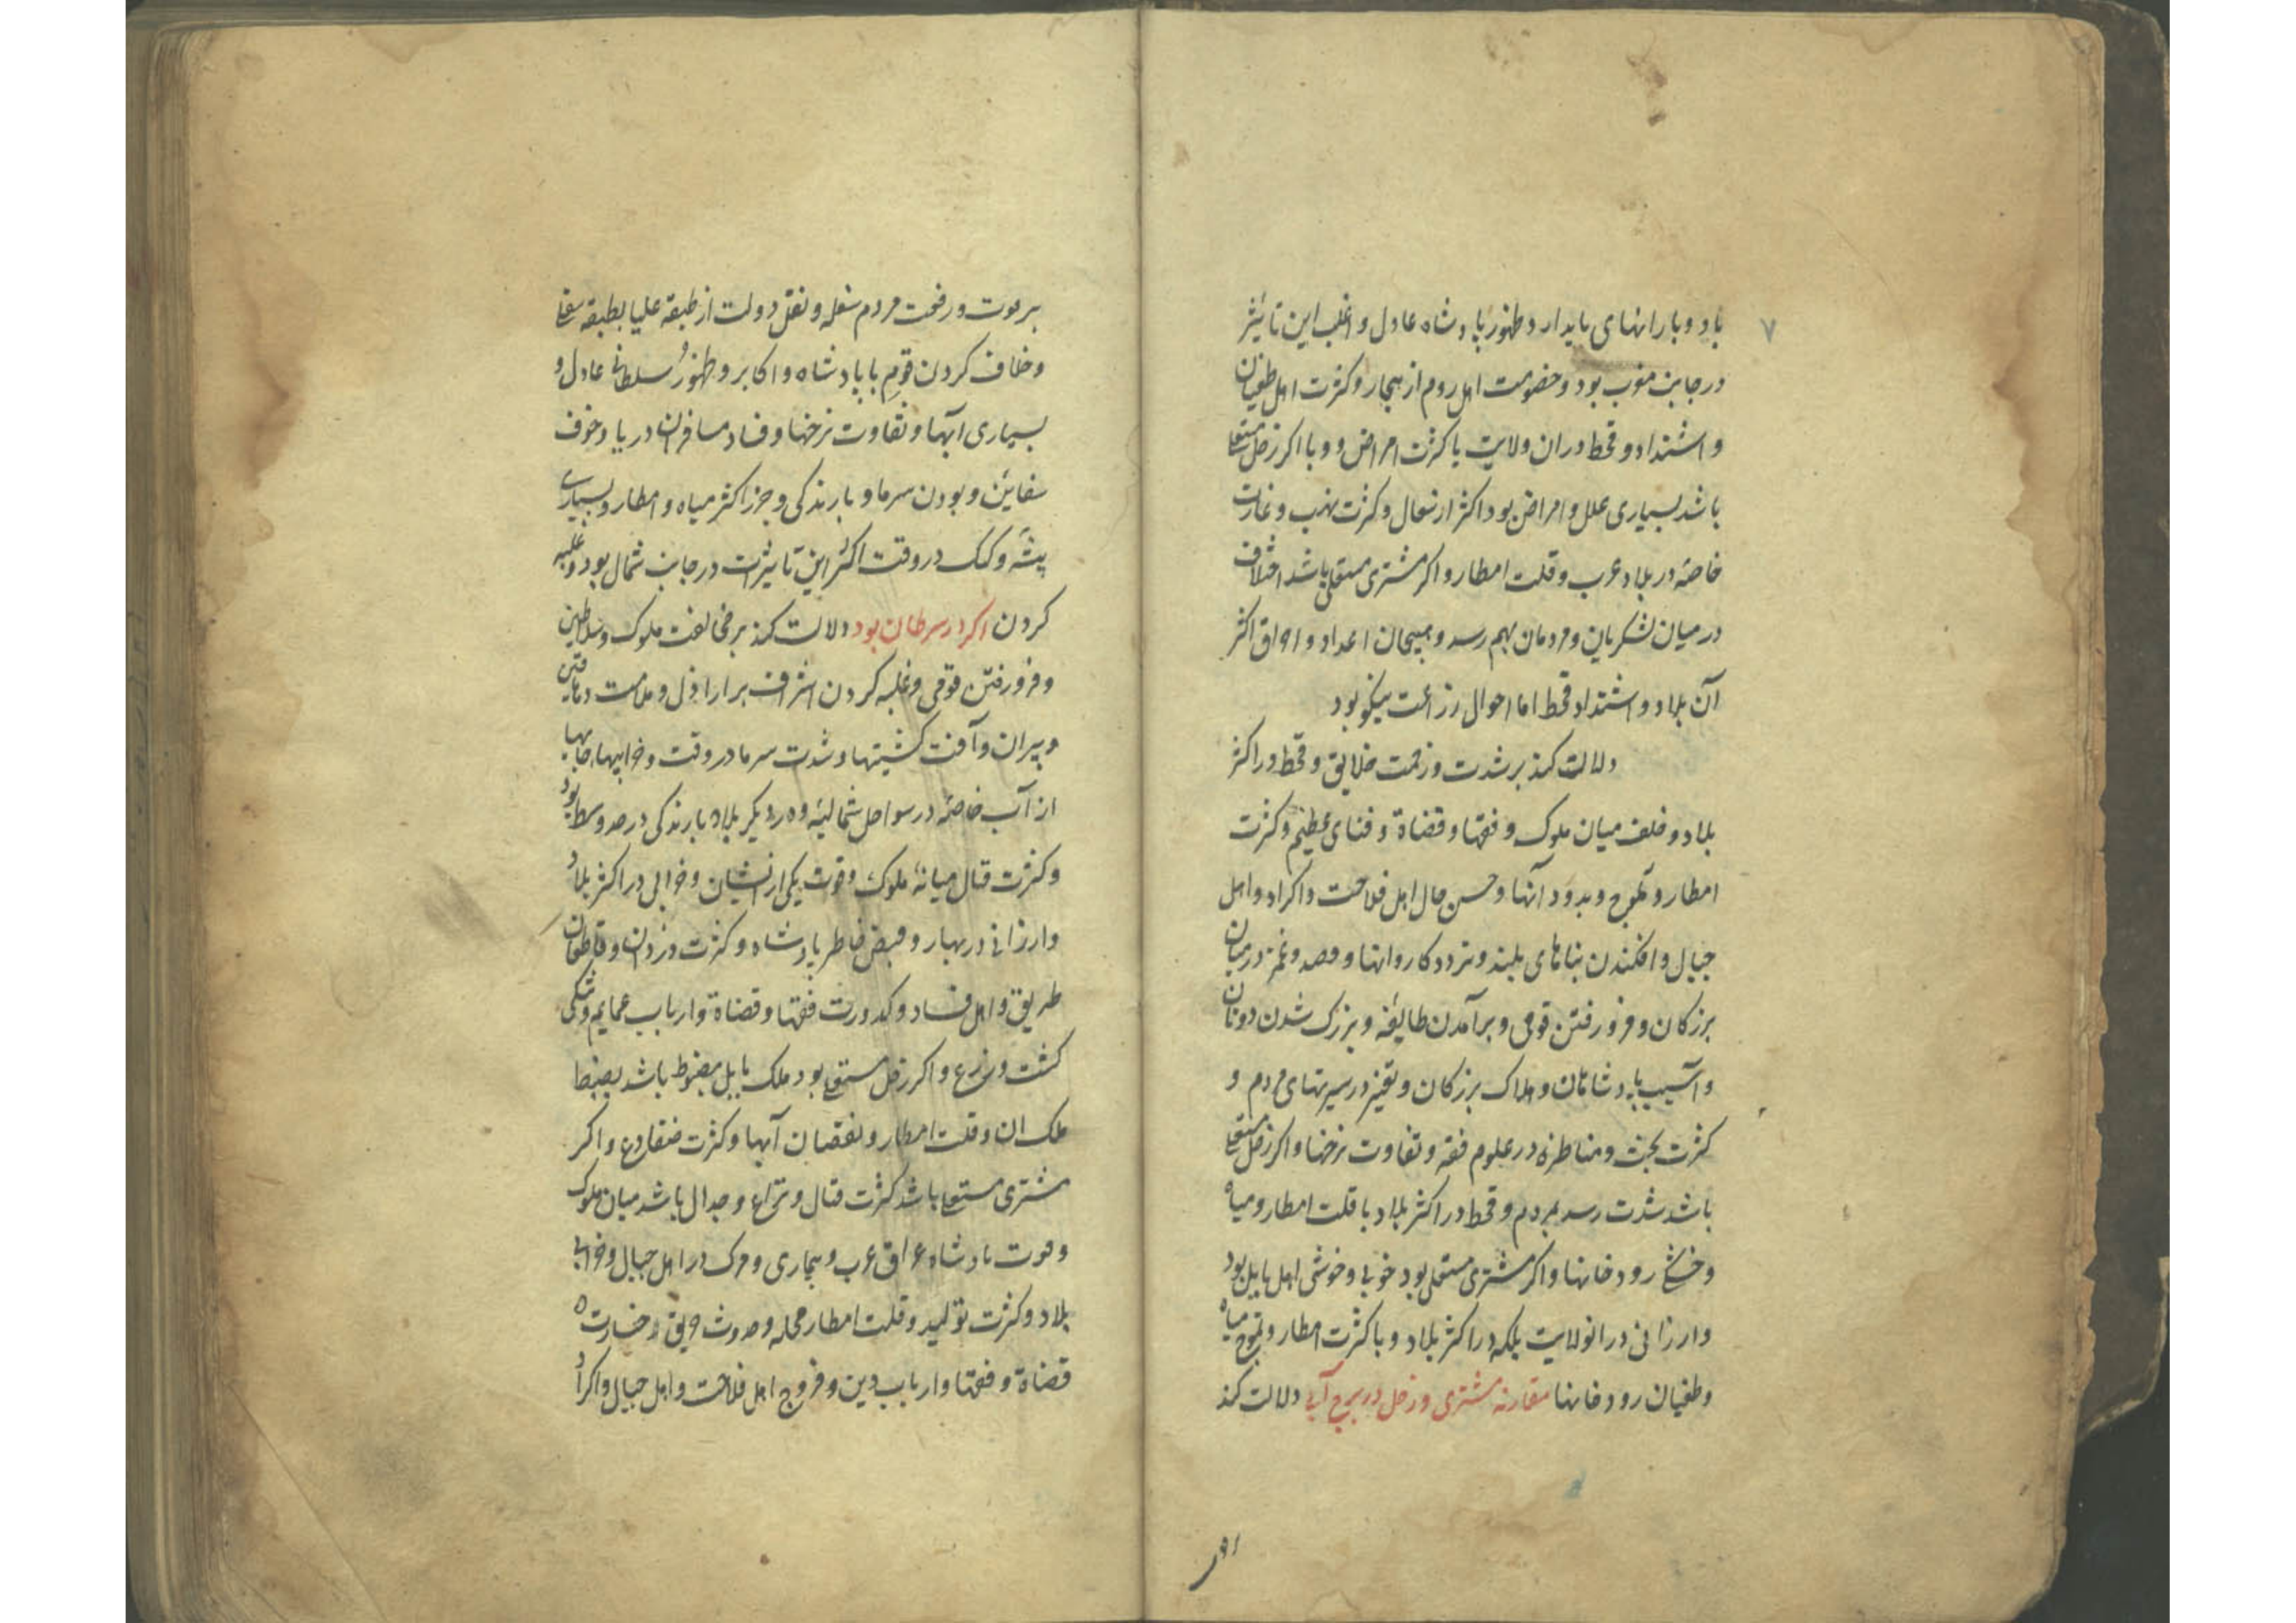 ۷
باد و بارانهای پایدار و ظهور پادشاه عادل و اغلب این تاثیر
در جانب مغرب بود و خصومت اهل روم از بیجار و کثرت اهل طغیان
و اشتداد و قحط دران ولایت با کثرت امراض و وبا اکر زحل مستعلی
باشد بسیاری علل و امراض بود اکثر از سعال و کثرت نهب و غارت
خاصّه در بلاد عرب و قلت امطار و اکر مشتری مستعلی باشد اختلاف
در میان لشکریان و مردمان بهم رسد و هیجان اعداد و اراق اکثر
آن بلاد و اشتداد قحط اما احوال زراعت نیکو بود
دلالت کند بر شدت و زحمت خلایق و قحط در اکثر
بلاد و خلف میان ملوک و فقها و قضاة و فنای عظیم و کثرت
امطار و ثلوج و بدود آنها و حسن حال اهل فلاحت و اکراد و اهل
جبال و افکندن بناهای بلند و تردد کاروانها و قصد و غمز در میان
بزرکان و فرو رفتن قومی و برآمدن طایفه و بزرک شدن دونان
و آسیب پادشاهان و هلاک بزرکان و تغیر در سیرتهای مردم و
کثرت بحث و مناظره در علوم فقه و تفاوت نرخها و اکر زحل مستعلی
باشد شدت رسد بمردم و قحط در اکثر بلاد با قلت امطار و میاه
و خشخ رودخانها و اکر مشتری مستعلی بود خوبی و خوشی اهل بابل بود
و ارزانی در انولایت بلکه در اکثر بلاد و با کثرت امطار و تموج میاه
و طغیان رودخانها مقارنه مشتری و زحل در برج آبی دلالت کند
بر موت و رفعت مردم سفله و نقل دولت از طبقه علیا بطبقه سفلی
و خلاف کردن قوم با پادشاه و اکابر و ظهور سلطانی عادل و
بسیاری آبها و تفاوت نرخها و فساد مسافران دریا و خوف
سفاین و بودن سرما و بارندکی و جزر اکثر میاه و امطار و بسیاری
پشه و کک در وقت اکثر این تاثیرات در جانب شمال بود و غلبه
کردن اکر در سرطان بود دلالت کند بر مخالفت ملوک و سلاطین
و فرو رفتن قومی و غلبه کردن اشراف بر اراذل و ملامت
و پیران و آفت کشتیها و شدت سرما در وقت و خرابیها جایها
از آب خاصّه در سواحل شمالیه و در دیکر بلاد بارندکی در حد وسط بود
و کثرت قتال میانه ملوک و فوت یکی از ایشان و خرابی در اکثر بلاد
و ارزانی در بهار و قبض خاطر پادشاه و کثرت دزدان و قاطعان
طریق و اهل فساد و کدورت فقها و قضاة و ارباب عمایم و نیکی
کشت و زرع و اکر زحل مستعلی بود ملک بابل مضبوط باشد بضبط
ملک ان و قلت امطار و نقصان آبها و کثرت ضفادع و اکر
مشتری مستعلی باشد کثرت قتال و نزاع و جدال باشد میان ملوک
و موت پادشاه عراق عرب و بیماری و مرک در اهل جبال و خرابی
بلاد و کثرت تولید و قلت امطار محله و حدوث حریق و خسارت
قضاة و فقها و ارباب دین و فروج اهل فلاحت و اهل جبال و اکراد